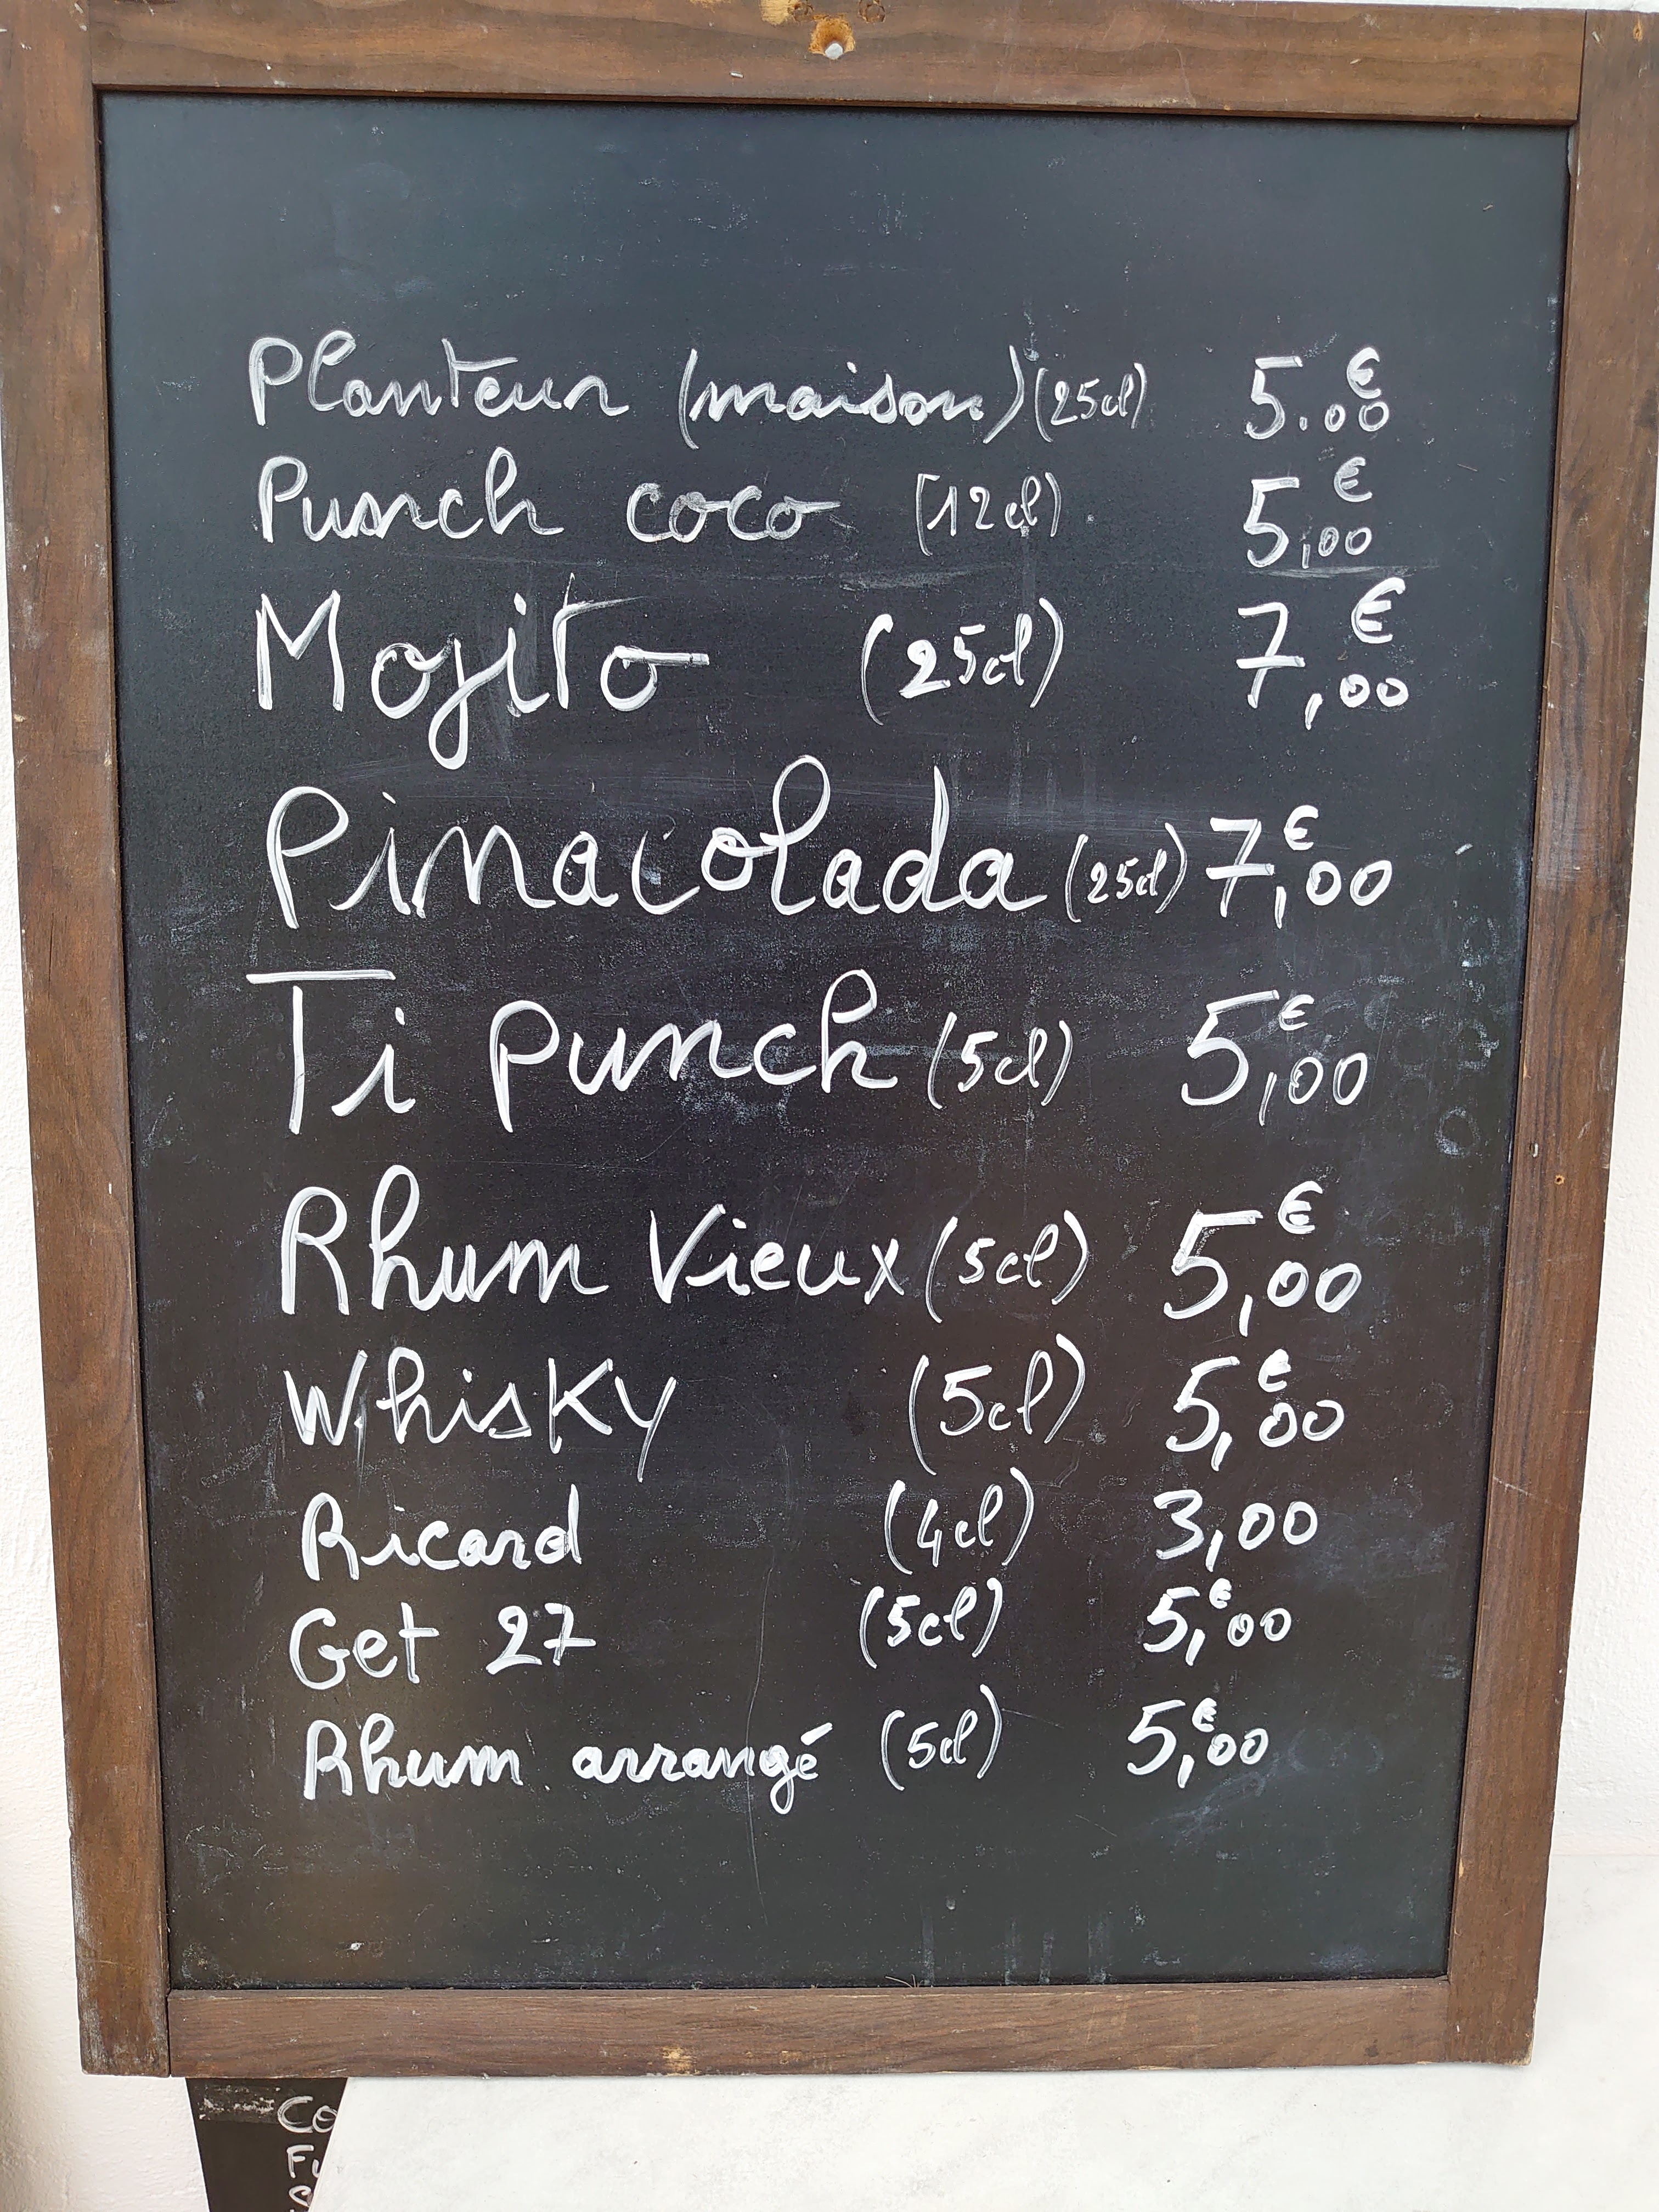 Planteur (maison) (25cl) 5.00€
Punch coco (12cl) 5,00€
Mojito (25cl) 7,00€
Pinacolada (25cl) 7,00€
Ti punch (5cl) 5,00€
Rhum Vieux (5cl) 5,00€
Whisky (5cl) 5,00€
Ricard (4cl) 3,00
Get 27 (5cl) 5,00€
Rhum arrangé (5cl) 5,00€